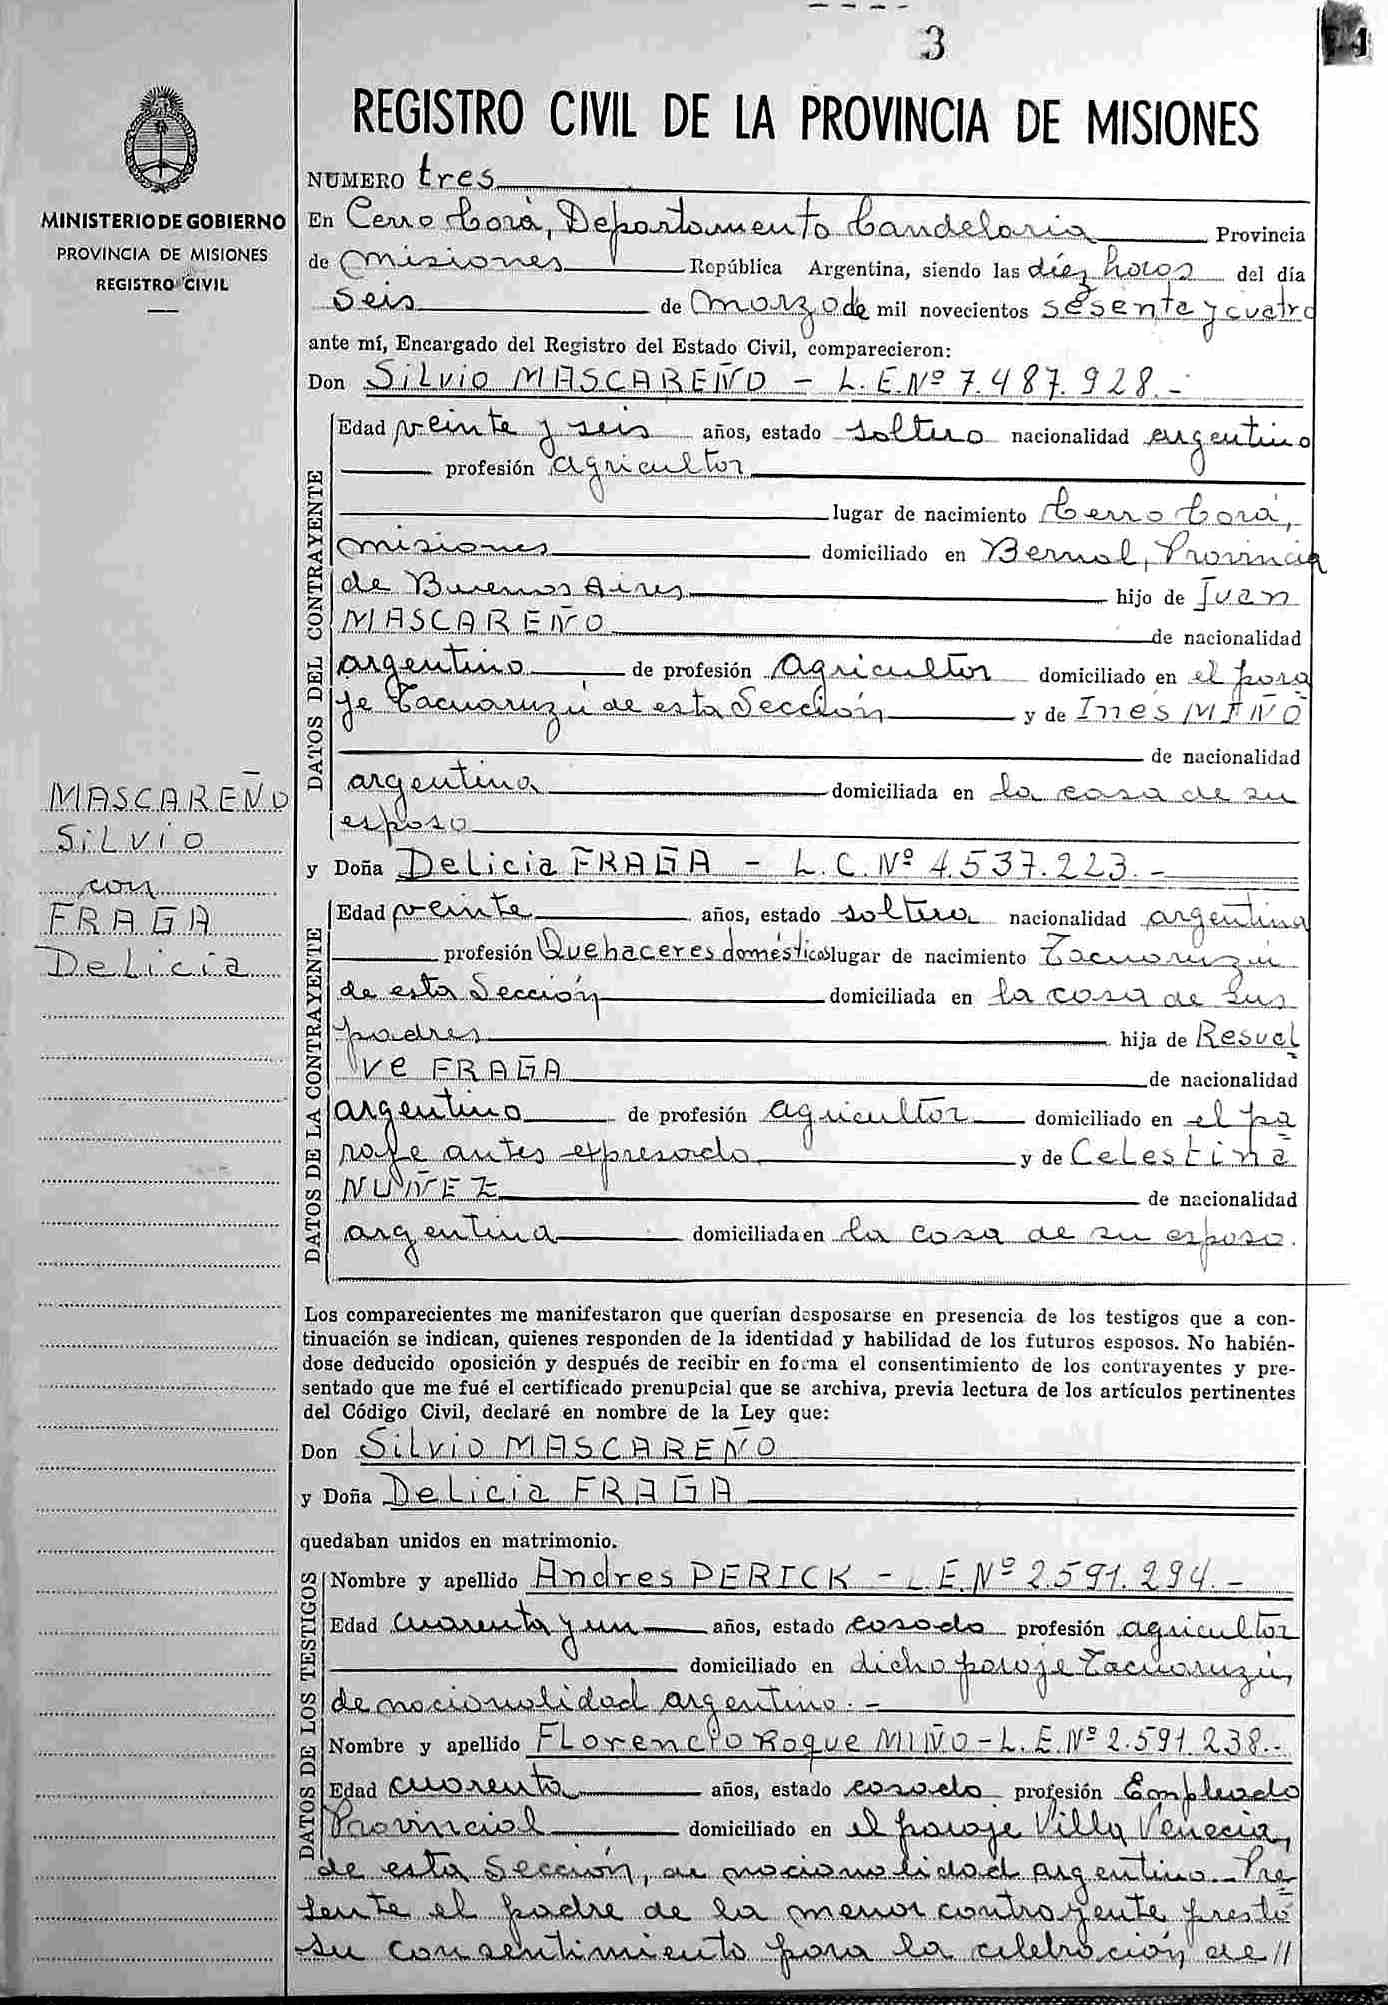 3
REGISTRO CIVIL DE LA PROVINCIA DE MISIONES
MINISTERIO DE GOBIERNO
PROVINCIA DE MISIONES
REGISTRO CIVIL
NUMERO tres
En Cerro Corá, Departamento Candelaria Provincia
de Misiones República Argentina, siendo las diez horas del día
seis de Marzo de mil novecientos sesenta y cuatro
ante mí, Encargado del Registro del Estado Civil, comparecieron:
Don Silvio MASCAREÑO - L.E.Nº 7.487.928.-
DATOS DEL CONTRAYENTE
Edad veinte y seis años, estado soltero nacionalidad argentino
profesión agricultor
lugar de nacimiento Cerro Corá,
Misiones domiciliado en Bernal, Provincia
de Buenos Aires hijo de Juan
MASCAREÑO de nacionalidad
argentino de profesión agricultor domiciliado en el para
je Tacuaruzú de esta Sección y de Inés MIÑO
de nacionalidad
argentina domiciliada en la casa de su
esposo
MASCAREÑO
Silvio
con
FRAGA
Delicia
y Doña Delicia FRAGA - L.C.Nº 4.537.223.-
DATOS DE LA CONTRAYENTE
Edad veinte años, estado soltera nacionalidad argentina
profesión Quehaceres domésticos lugar de nacimiento Tacuaruzú
de esta Sección domiciliada en la casa de sus
padres hija de Resuel
ve FRAGA de nacionalidad
argentino de profesión agricultor domiciliado en el pa
raje antes expresado y de Celestina
NUÑEZ de nacionalidad
argentina domiciliada en la casa de su esposo.
Los comparecientes me manifestaron que querían desposarse en presencia de los testigos que a con-
tinuación se indican, quienes responden de la identidad y habilidad de los futuros esposos. No habién-
dose deducido oposición y después de recibir en forma el consentimiento de los contrayentes y pre-
sentado que me fué el certificado prenupcial que se archiva, previa lectura de los artículos pertinentes
del Código Civil, declaré en nombre de la Ley que:
Don Silvio MASCAREÑO
y Doña Delicia FRAGA
quedaban unidos en matrimonio.
DATOS DE LOS TESTIGOS
Nombre y apellido Andres PERICK - L.E.Nº 2.591.294.-
Edad cuarenta y un años, estado casado profesión agricultor
domiciliado en dicho paraje Tacuaruzú,
de nacionalidad argentino.-
Nombre y apellido Florencio Roque MIÑO - L.E.Nº 2.591.238.-
Edad cuarenta años, estado casado profesión Empleado
Provincial domiciliado en el paraje Villa Venecia,
de esta Sección, de nacionalidad argentino.- Pre
sente el padre de la menor contrayente prestó
su consentimiento para la celebración de //